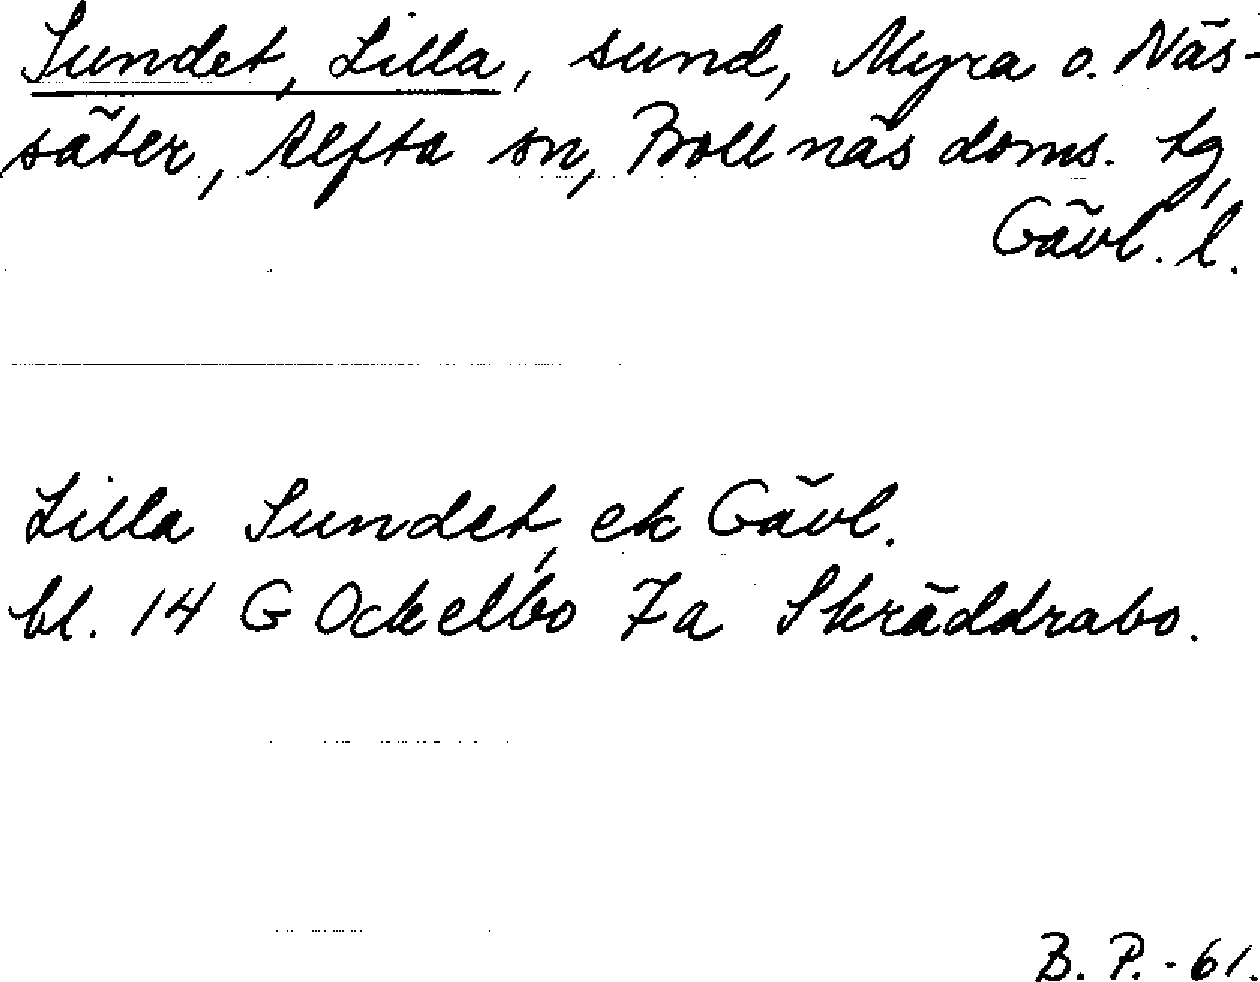 Sundet, Lilla, sund, Myra o. Näs-
säter, Alfta sn, Bollnäs doms. tg,
Gävl. l.
Lilla Sundet, ek Gävl.
bl. 14 G Ockelbo 7a Skräddrabo.
B. P. - 61.